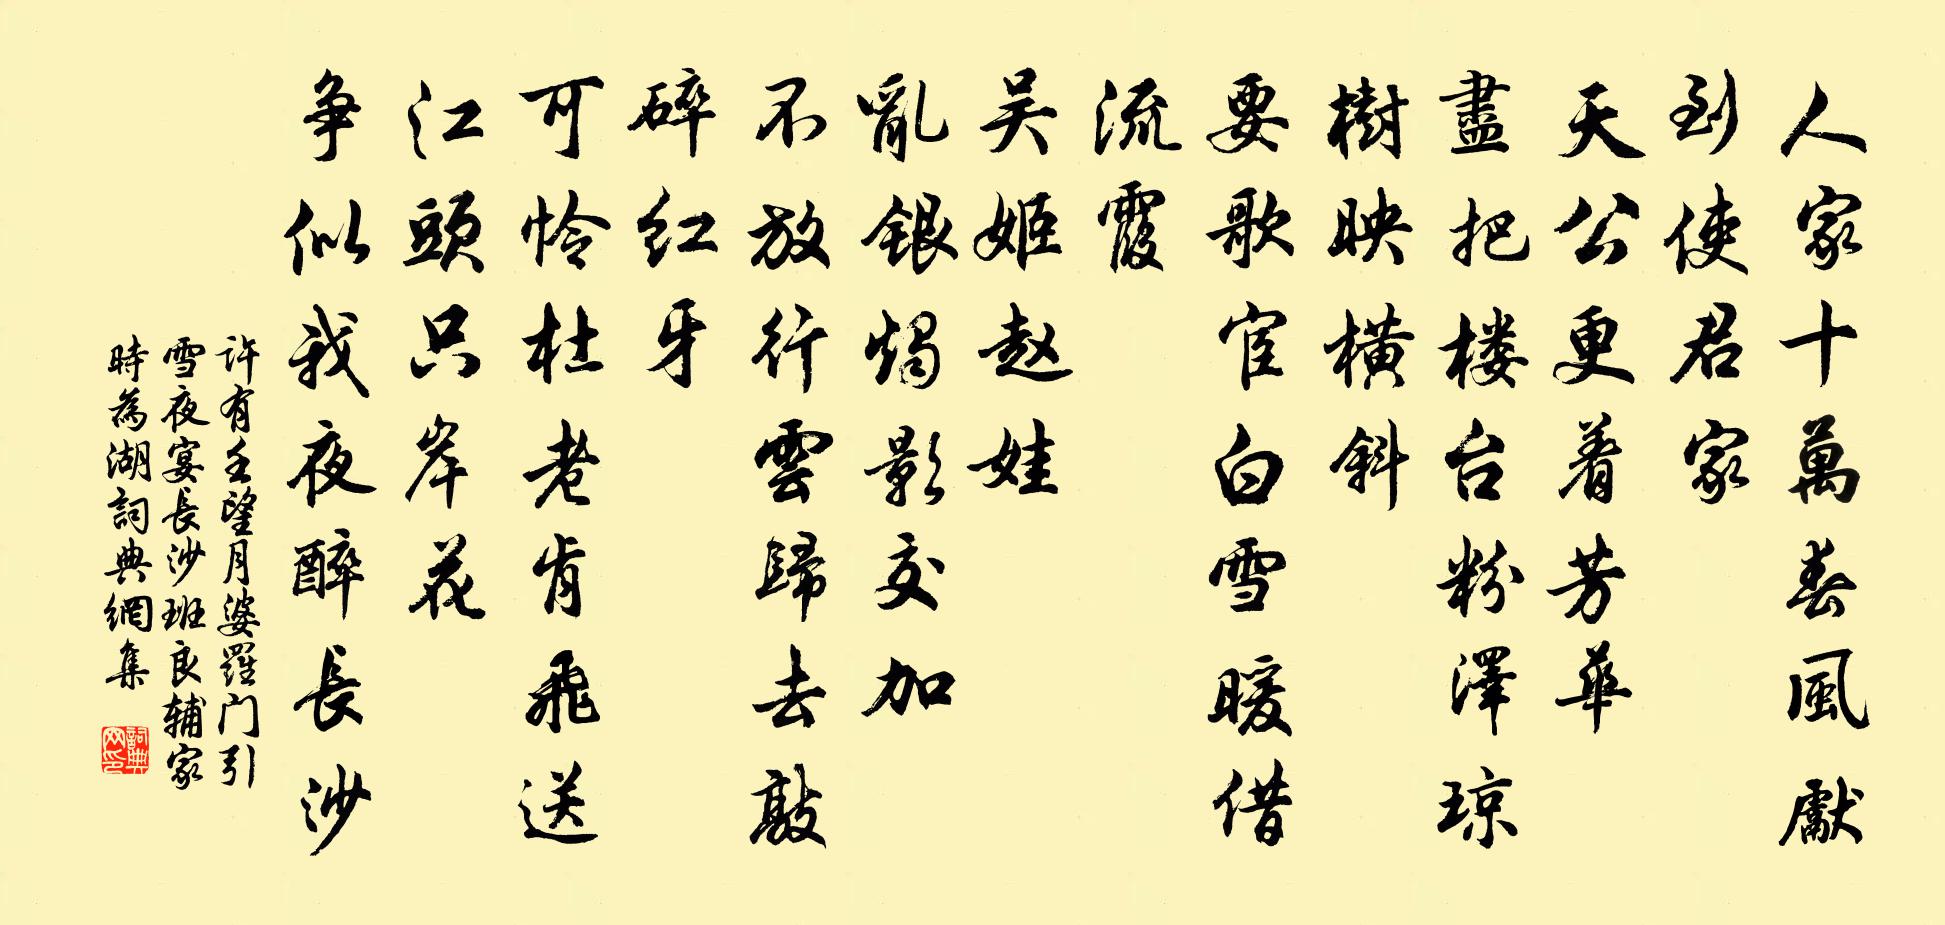 人家十萬春風獻
到使君家
天公更着芳華
盡把楼台粉澤琼
樹映橫斜
要歌官白雪暖借
流霞
吴姬赵娃
亂銀燭影交加
不放行雲歸去敲
碎红牙
可怜杜老肯飛送
江頭只岸花
争似我夜醉長沙
许有壬望月婆羅门引
雪夜宴長沙班良辅家
時為湖詞典網集
詞典网印